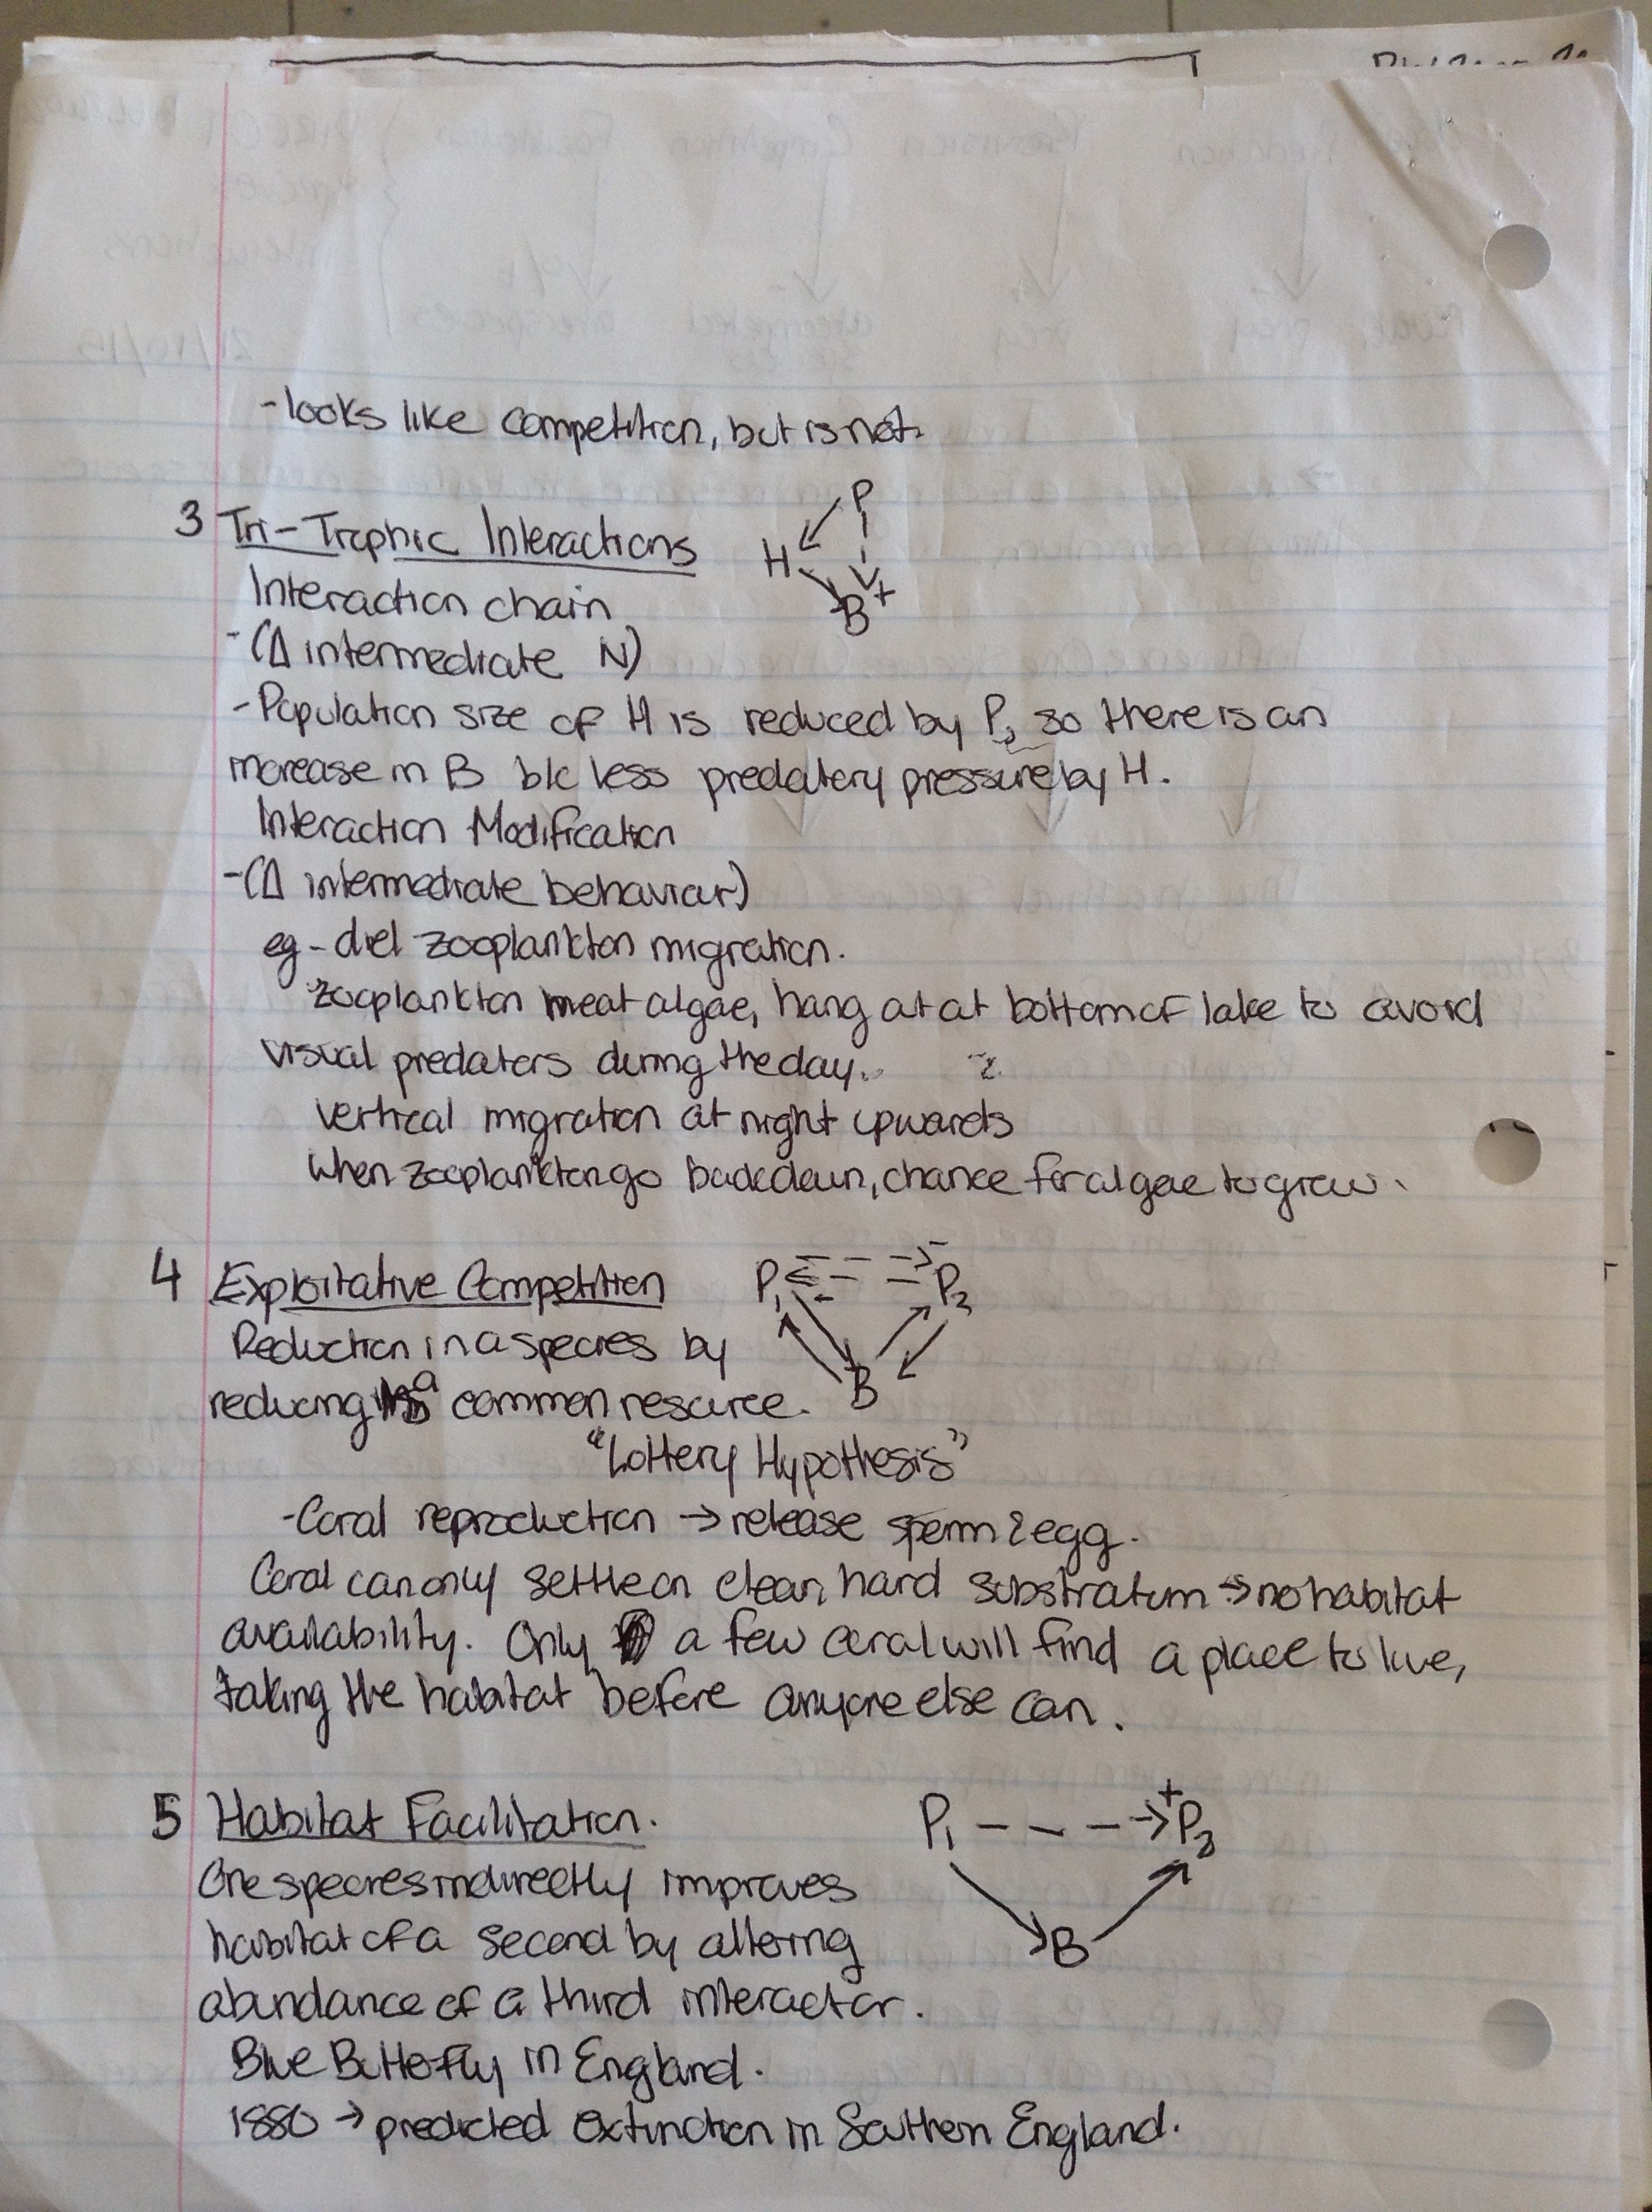 -looks like competition, but is not.
P
3 Tri-Trophic Interactions
H
Interaction chain
B +
-(Δ intermediate N)
-Population size of H is reduced by P, so there is an
increase in B b/c less predatory pressure by H.
Interaction Modification
-(Δ intermediate behaviour)
eg - diel zooplankton migration.
zooplankton eat algae, hang at at bottom of lake to avoid
visual predators during the day.
vertical migration at night upwards
when zooplankton go back down, chance for algae to grow.
4 Exploitative Competition
P1 - - P2
Reduction in a species by
B
reducing a common resource.
"Lottery Hypothesis"
-Coral reproduction → release sperm & egg.
Coral can only settle on clean, hard substratum → no habitat
availability. Only a few coral will find a place to live,
taking the habitat before anyone else can.
5 Habitat Facilitation.
P1 + P2
One species indirectly improves
habitat of a second by altering
B
abundance of a third interactor.
Blue Butterfly in England.
1880 → predicted extinction in Southern England.